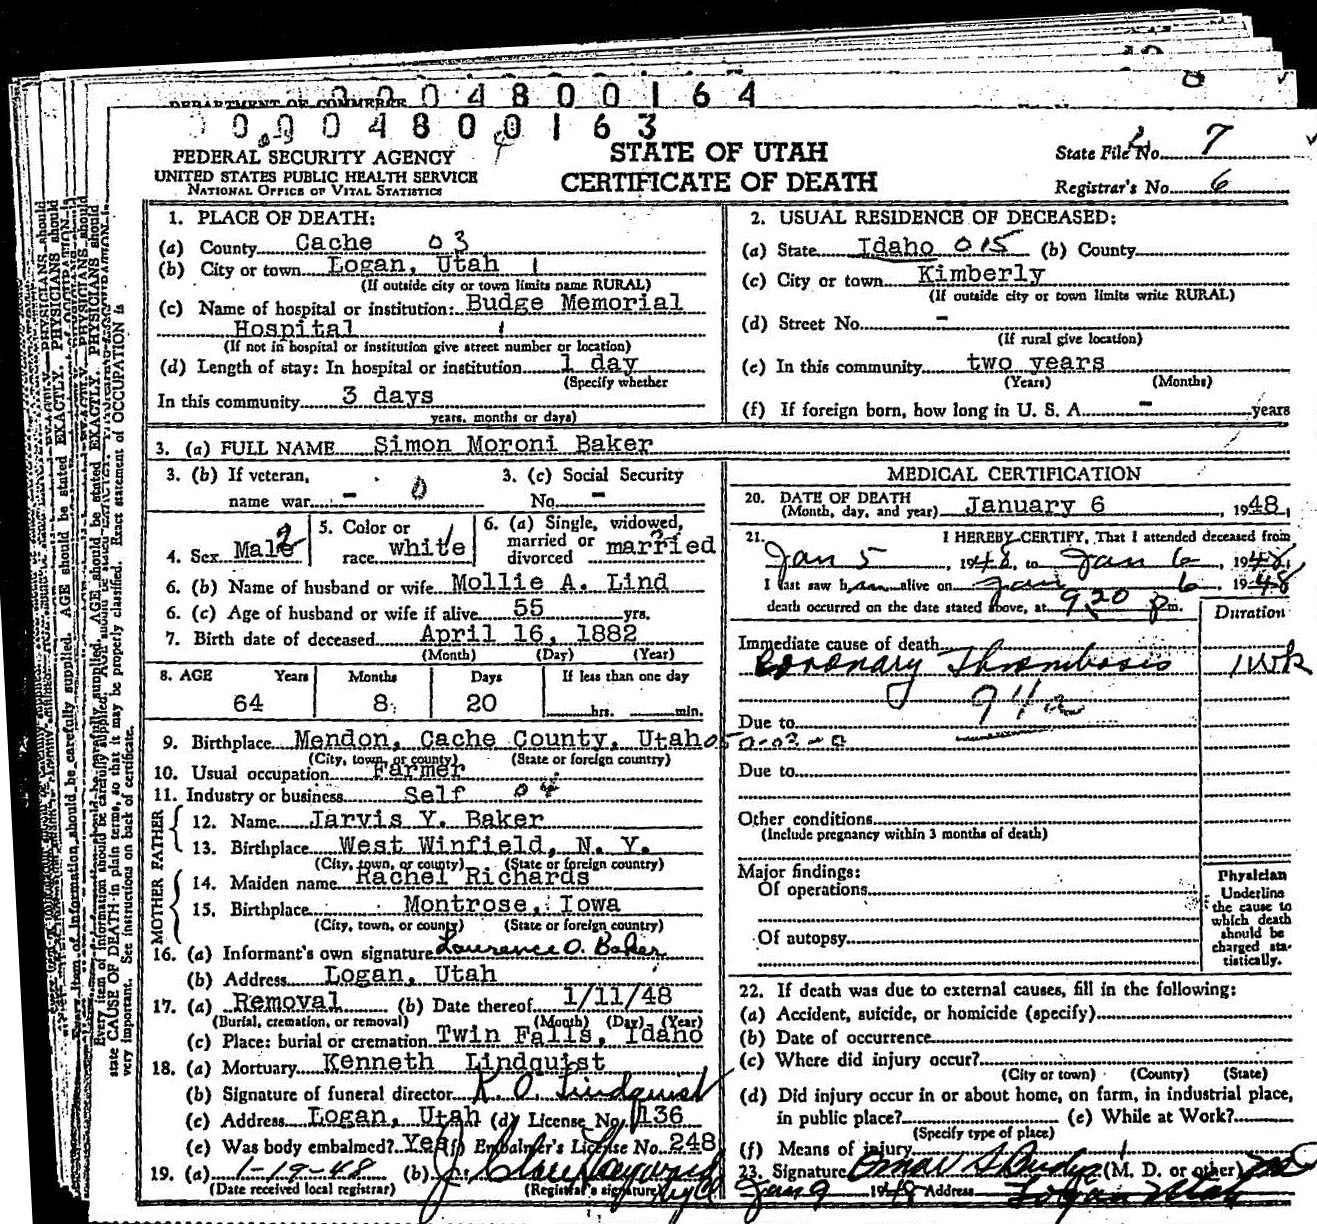 DEPARTMENT OF COMMERCE
0 0 0 4 8 0 0 1 6 4
0 0 0 4 8 0 0 1 6 3
FEDERAL SECURITY AGENCY
UNITED STATES PUBLIC HEALTH SERVICE
NATIONAL OFFICE OF VITAL STATISTICS
STATE OF UTAH
CERTIFICATE OF DEATH
State File No. 7
Registrar's No. 6
1. PLACE OF DEATH:
(a) County Cache 03
(b) City or town Logan, Utah 1
(If outside city or town limits name RURAL)
(c) Name of hospital or institution: Budge Memorial
Hospital 1
(If not in hospital or institution give street number or location)
(d) Length of stay: In hospital or institution 1 day
(Specify whether
In this community 3 days
years, months or days)
2. USUAL RESIDENCE OF DECEASED:
(a) State Idaho 015 (b) County
(c) City or town Kimberly
(If outside city or town limits write RURAL)
(d) Street No. -
(If rural give location)
(e) In this community two years
(Years) (Months)
(f) If foreign born, how long in U. S. A. - years
3. (a) FULL NAME Simon Moroni Baker
3. (b) If veteran, 3. (c) Social Security
name war - 0 No. -
4. Sex Male 2 5. Color or race white 1 6. (a) Single, widowed, married or divorced married
6. (b) Name of husband or wife Mollie A. Lind
6. (c) Age of husband or wife if alive 55 yrs.
7. Birth date of deceased April 16, 1882
(Month) (Day) (Year)
8. AGE Years Months Days If less than one day
64 8 20 hrs. min.
9. Birthplace Mendon, Cache County, Utah
(City, town, or county) (State or foreign country)
10. Usual occupation Farmer
11. Industry or business Self 04
FATHER
12. Name Jarvis Y. Baker
13. Birthplace West Winfield, N. Y.
(City, town, or county) (State or foreign country)
MOTHER
14. Maiden name Rachel Richards
15. Birthplace Montrose, Iowa
(City, town, or county) (State or foreign country)
16. (a) Informant's own signature Lawrence O. Baker
(b) Address Logan, Utah
17. (a) Removal (b) Date thereof 1/11/48
(Burial, cremation, or removal) (Month) (Day) (Year)
(c) Place: burial or cremation Twin Falls, Idaho
18. (a) Mortuary Kenneth Lindquist
(b) Signature of funeral director K. O. Lindquist
(c) Address Logan, Utah (d) License No. 136
(e) Was body embalmed? Yes (f) Embalmer's License No. 248
19. (a) 1-19-48 (b)
(Date received local registrar) (Registrar's signature)
MEDICAL CERTIFICATION
20. DATE OF DEATH
(Month, day, and year) January 6, 1948
21. I HEREBY CERTIFY, That I attended deceased from
Jan 5, 1948, to Jan 6, 1948;
I last saw him alive on Jan 6 1948
death occurred on the date stated above, at 9:20 p m.
Duration
Immediate cause of death
Coronary Thrombosis 1 wk
94a
Due to
Due to
Other conditions
(Include pregnancy within 3 months of death)
Major findings:
Of operations
Of autopsy
Physician
Underline
the cause to
which death
should be
charged sta-
tistically.
22. If death was due to external causes, fill in the following:
(a) Accident, suicide, or homicide (specify)
(b) Date of occurrence
(c) Where did injury occur?
(City or town) (County) (State)
(d) Did injury occur in or about home, on farm, in industrial place,
in public place? (e) While at Work?
(Specify type of place)
(f) Means of injury
23. Signature (M. D. or other) MD
Jan 9 1948 Address Logan Utah
Every item of information should be carefully supplied. AGE should be stated EXACTLY. PHYSICIANS should
state CAUSE OF DEATH in plain terms, so that it may be properly classified. Exact statement of OCCUPATION is
very important. See instructions on back of certificate.